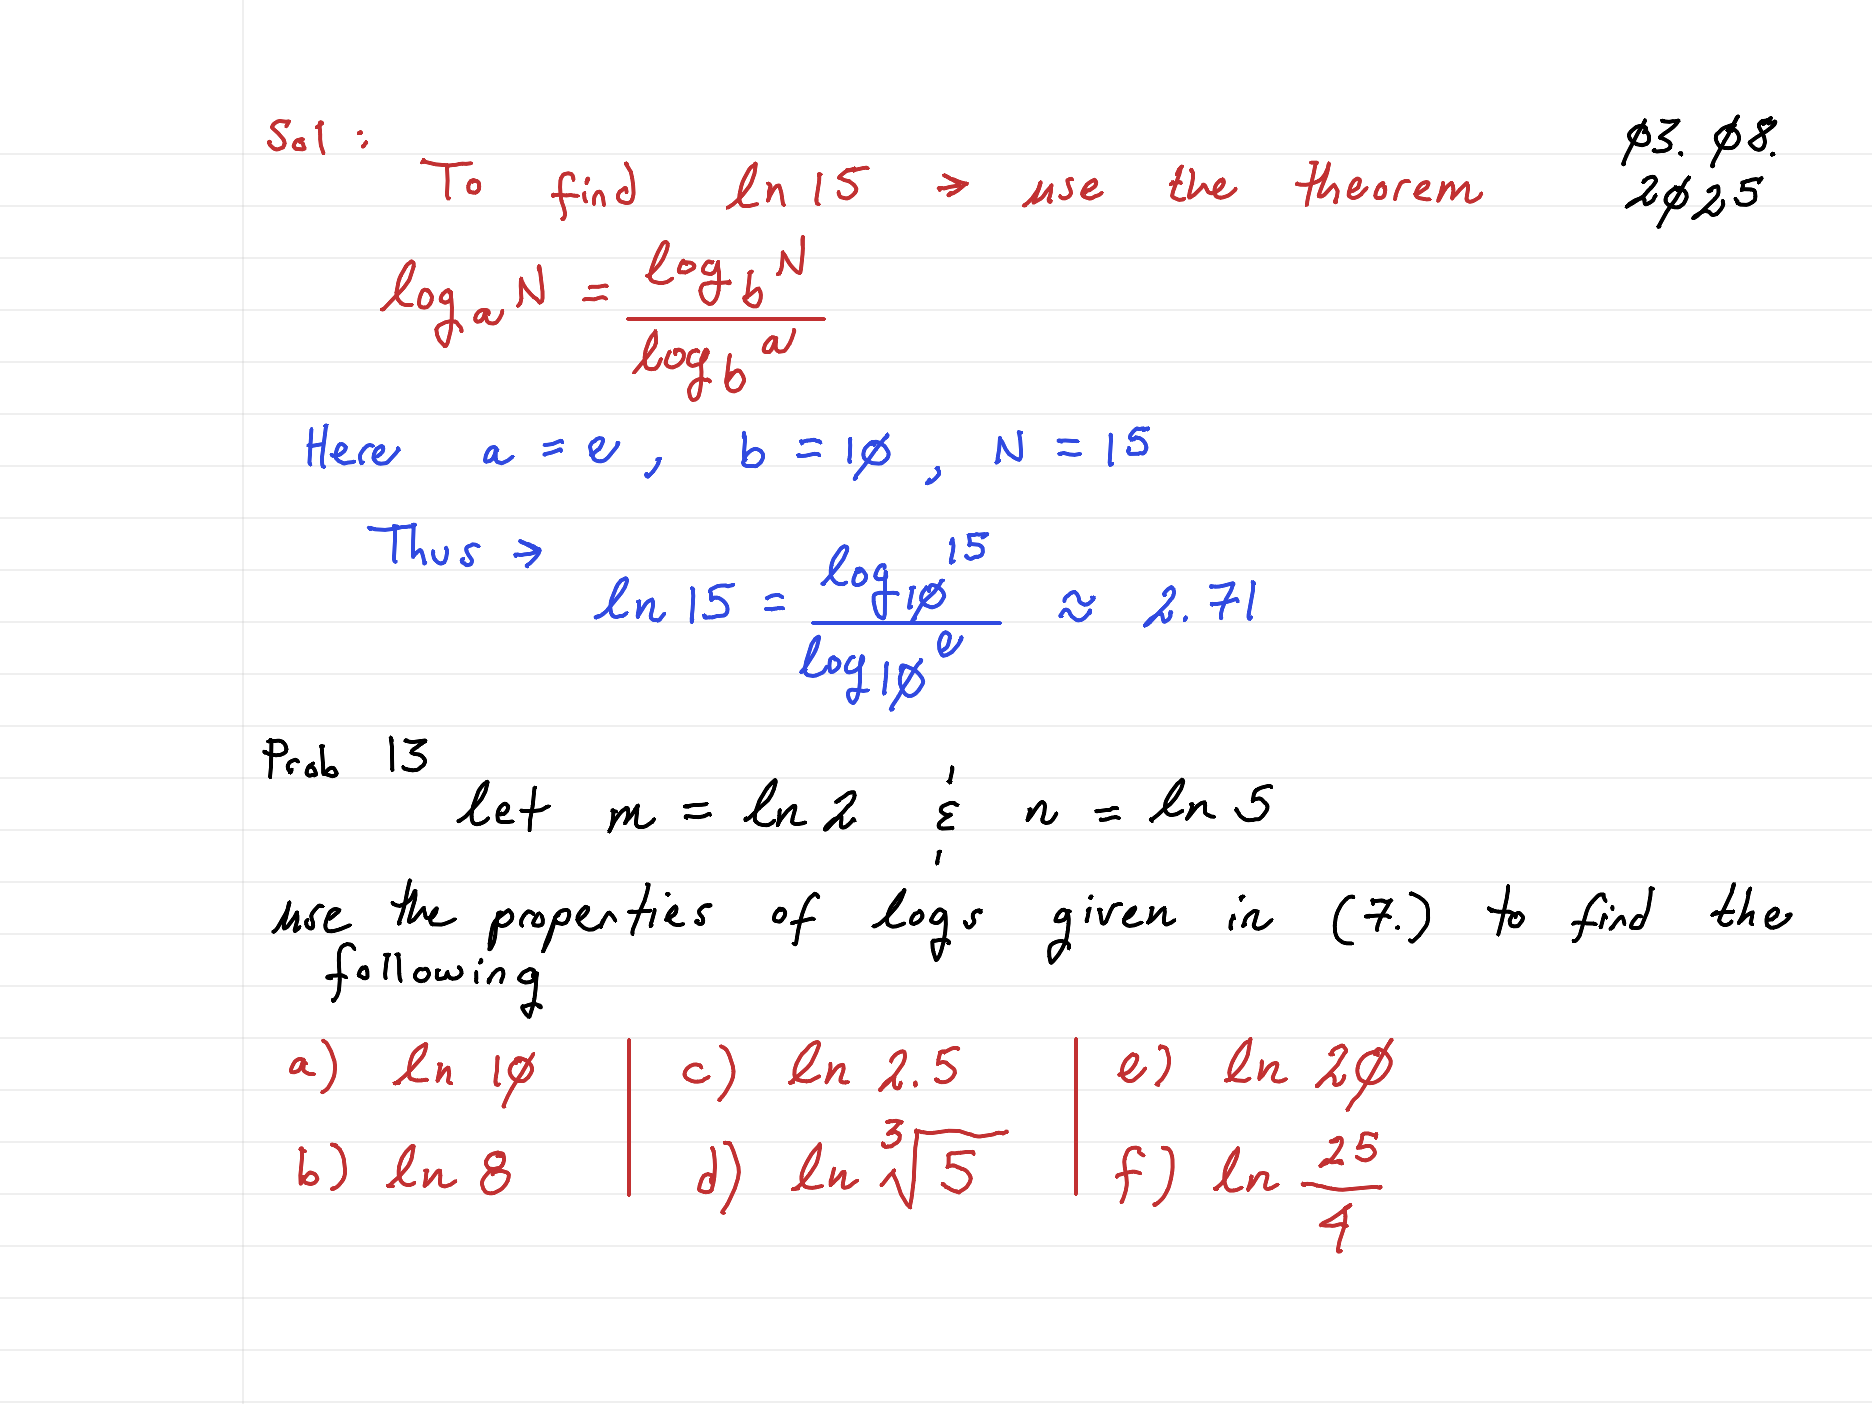 Sol :
ø3. ø8.
2ø25
To find ln 15 → use the theorem
log_a N = log_b N / log_b a
Here a = e, b = 1ø, N = 15
Thus →
ln 15 = log_1ø 15 / log_1ø e ≈ 2.71
Prob 13
let m = ln 2 & n = ln 5
use the properties of logs given in (7.) to find the
following
a) ln 1ø | c) ln 2.5 | e) ln 2ø
b) ln 8 | d) ln ³√5 | f) ln 25/4